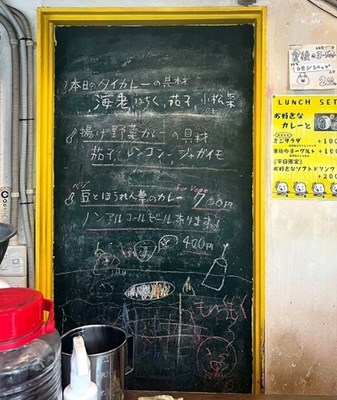 本日のタイカレーの具材
海老、はちく、茄子、小松菜
揚げ野菜カレーの具材
茄子、レンコン、ジャガイモ
豆とほうれん草のカレー
for Vegan
700円
ノンアルコールビールあります！
400円
食後の
LUNCH SET
お好きな
カレーと
ミニサラダ +100
本日のヨーグルト +100
【平日限定】
お好きなソフトドリンク
+200